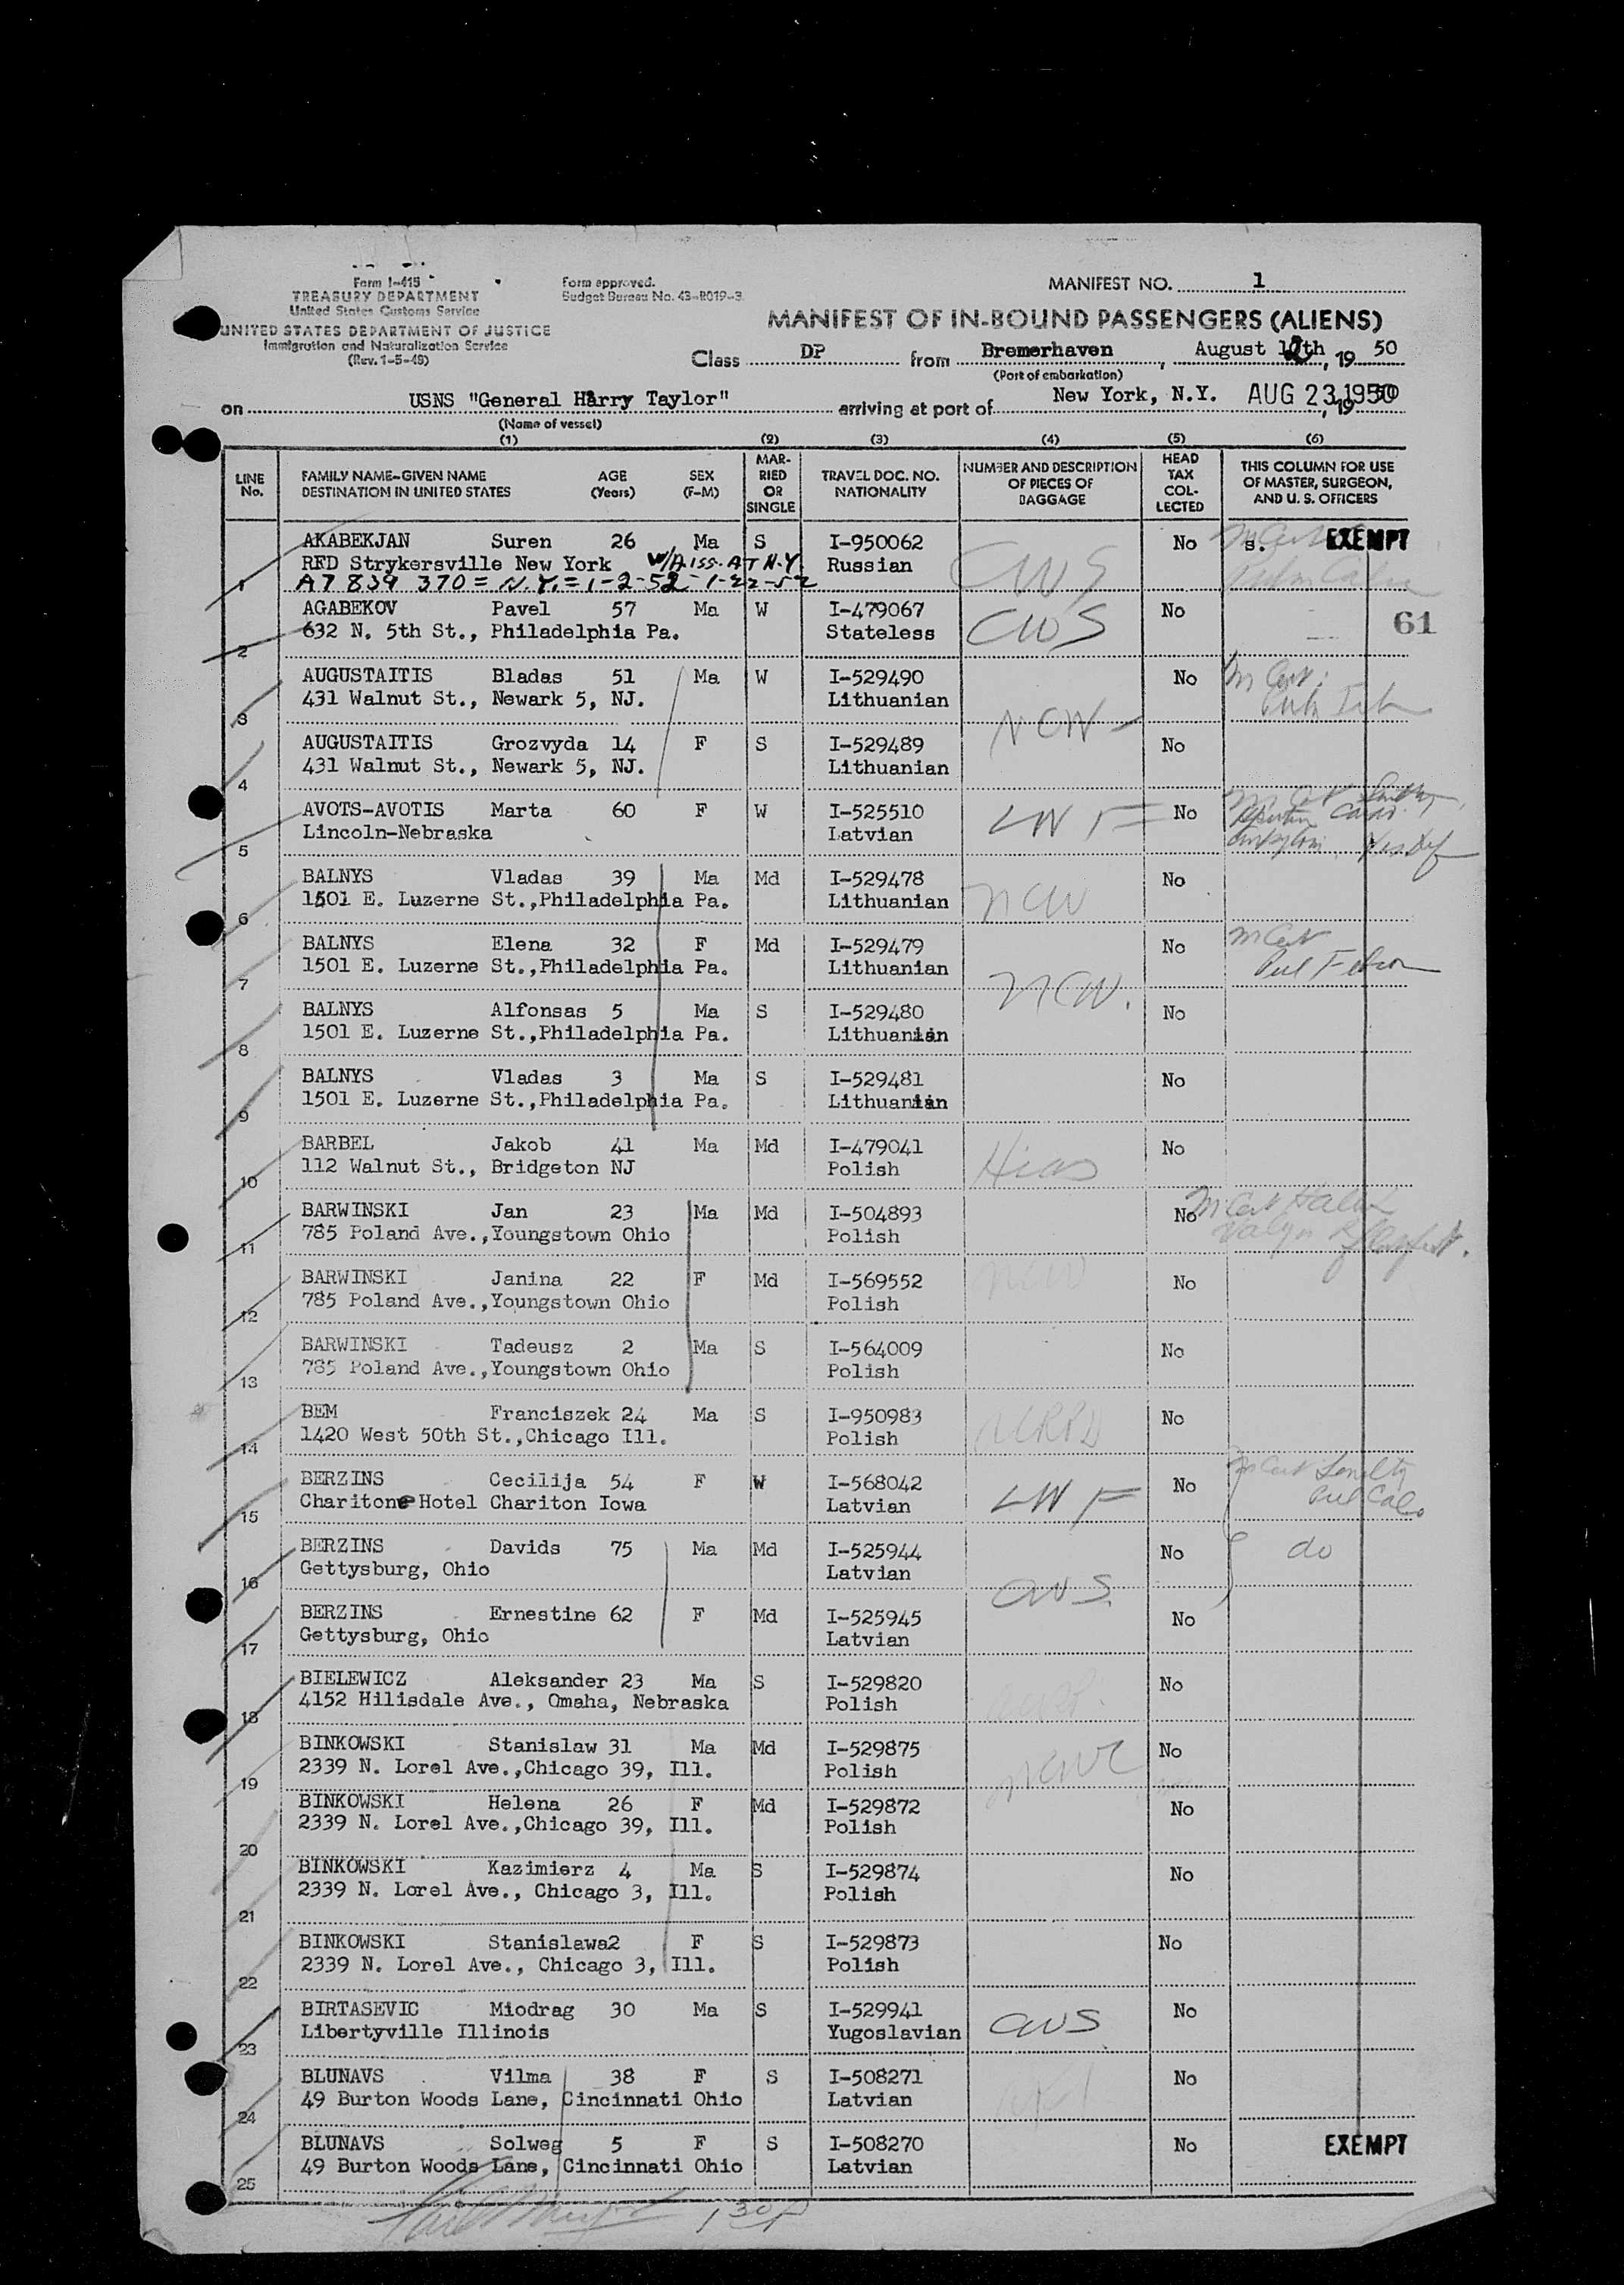 Form I-415
TREASURY DEPARTMENT
United States Customs Service
UNITED STATES DEPARTMENT OF JUSTICE
Immigration and Naturalization Service
(Rev. 1-5-48)
Form approved.
Budget Bureau No. 43-R019-3.
MANIFEST NO. 1
MANIFEST OF IN-BOUND PASSENGERS (ALIENS)
Class DP from Bremerhaven, August 12th, 19 50
(Port of embarkation)
on USNS "General Harry Taylor" arriving at port of New York, N.Y. AUG 23 1950, 19 50
(Name of vessel)
(1) (2) (3) (4) (5) (6)
LINE No. FAMILY NAME-GIVEN NAME DESTINATION IN UNITED STATES AGE (Years) SEX (F-M) MARRIED OR SINGLE TRAVEL DOC. NO. NATIONALITY NUMBER AND DESCRIPTION OF PIECES OF BAGGAGE HEAD TAX COLLECTED THIS COLUMN FOR USE OF MASTER, SURGEON, AND U. S. OFFICERS
AKABEKJAN Suren 26 Ma S I-950062 No s. EXEMPT
RFD Strykersville New York W/A ISS. AT N.Y. Russian CWS
1 A7 839 370 = N.Y. = 1-2-52 - 1-22-52
AGABEKOV Pavel 57 Ma W I-479067 No
632 N. 5th St., Philadelphia Pa. Stateless CWS 61
2
AUGUSTAITIS Bladas 51 Ma W I-529490 No M Cert:
431 Walnut St., Newark 5, NJ. Lithuanian
3 NCW
AUGUSTAITIS Grozvyda 14 F S I-529489 No
431 Walnut St., Newark 5, NJ. Lithuanian
4
AVOTS-AVOTIS Marta 60 F W I-525510 LWF No
Lincoln-Nebraska Latvian
5
BALNYS Vladas 39 Ma Md I-529478 No
1501 E. Luzerne St.,Philadelphia Pa. Lithuanian NCW
6
BALNYS Elena 32 F Md I-529479 No M Cert
1501 E. Luzerne St.,Philadelphia Pa. Lithuanian
7 NCW.
BALNYS Alfonsas 5 Ma S I-529480 No
1501 E. Luzerne St.,Philadelphia Pa. Lithuanian
8
BALNYS Vladas 3 Ma S I-529481 No
1501 E. Luzerne St.,Philadelphia Pa. Lithuanian
9
BARBEL Jakob 41 Ma Md I-479041 No
112 Walnut St., Bridgeton NJ Polish Hias
10
BARWINSKI Jan 23 Ma Md I-504893 No M Cert
785 Poland Ave.,Youngstown Ohio Polish
11
BARWINSKI Janina 22 F Md I-569552 NCW No
785 Poland Ave.,Youngstown Ohio Polish
12
BARWINSKI Tadeusz 2 Ma S I-564009 No
785 Poland Ave.,Youngstown Ohio Polish
13
BEM Franciszek 24 Ma S I-950983 No
1420 West 50th St.,Chicago Ill. Polish
14
BERZINS Cecilija 54 F W I-568042 No M Cert
Chariton Hotel Chariton Iowa Latvian LWF
15
BERZINS Davids 75 Ma Md I-525944 No do
Gettysburg, Ohio Latvian
16 CWS.
BERZINS Ernestine 62 F Md I-525945 No
Gettysburg, Ohio Latvian
17
BIELEWICZ Aleksander 23 Ma S I-529820 No
4152 Hilisdale Ave., Omaha, Nebraska Polish
18
BINKOWSKI Stanislaw 31 Ma Md I-529875 No
2339 N. Lorel Ave.,Chicago 39, Ill. Polish NCWC
19
BINKOWSKI Helena 26 F Md I-529872 No
2339 N. Lorel Ave.,Chicago 39, Ill. Polish
20
BINKOWSKI Kazimierz 4 Ma S I-529874 No
2339 N. Lorel Ave., Chicago 3, Ill. Polish
21
BINKOWSKI Stanislawa2 F S I-529873 No
2339 N. Lorel Ave., Chicago 3, Ill. Polish
22
BIRTASEVIC Miodrag 30 Ma S I-529941 No
Libertyville Illinois Yugoslavian CWS
23
BLUNAVS Vilma 38 F S I-508271 No
49 Burton Woods Lane, Cincinnati Ohio Latvian
24
BLUNAVS Solweg 5 F S I-508270 No EXEMPT
49 Burton Woods Lane, Cincinnati Ohio Latvian
25
1 30 P